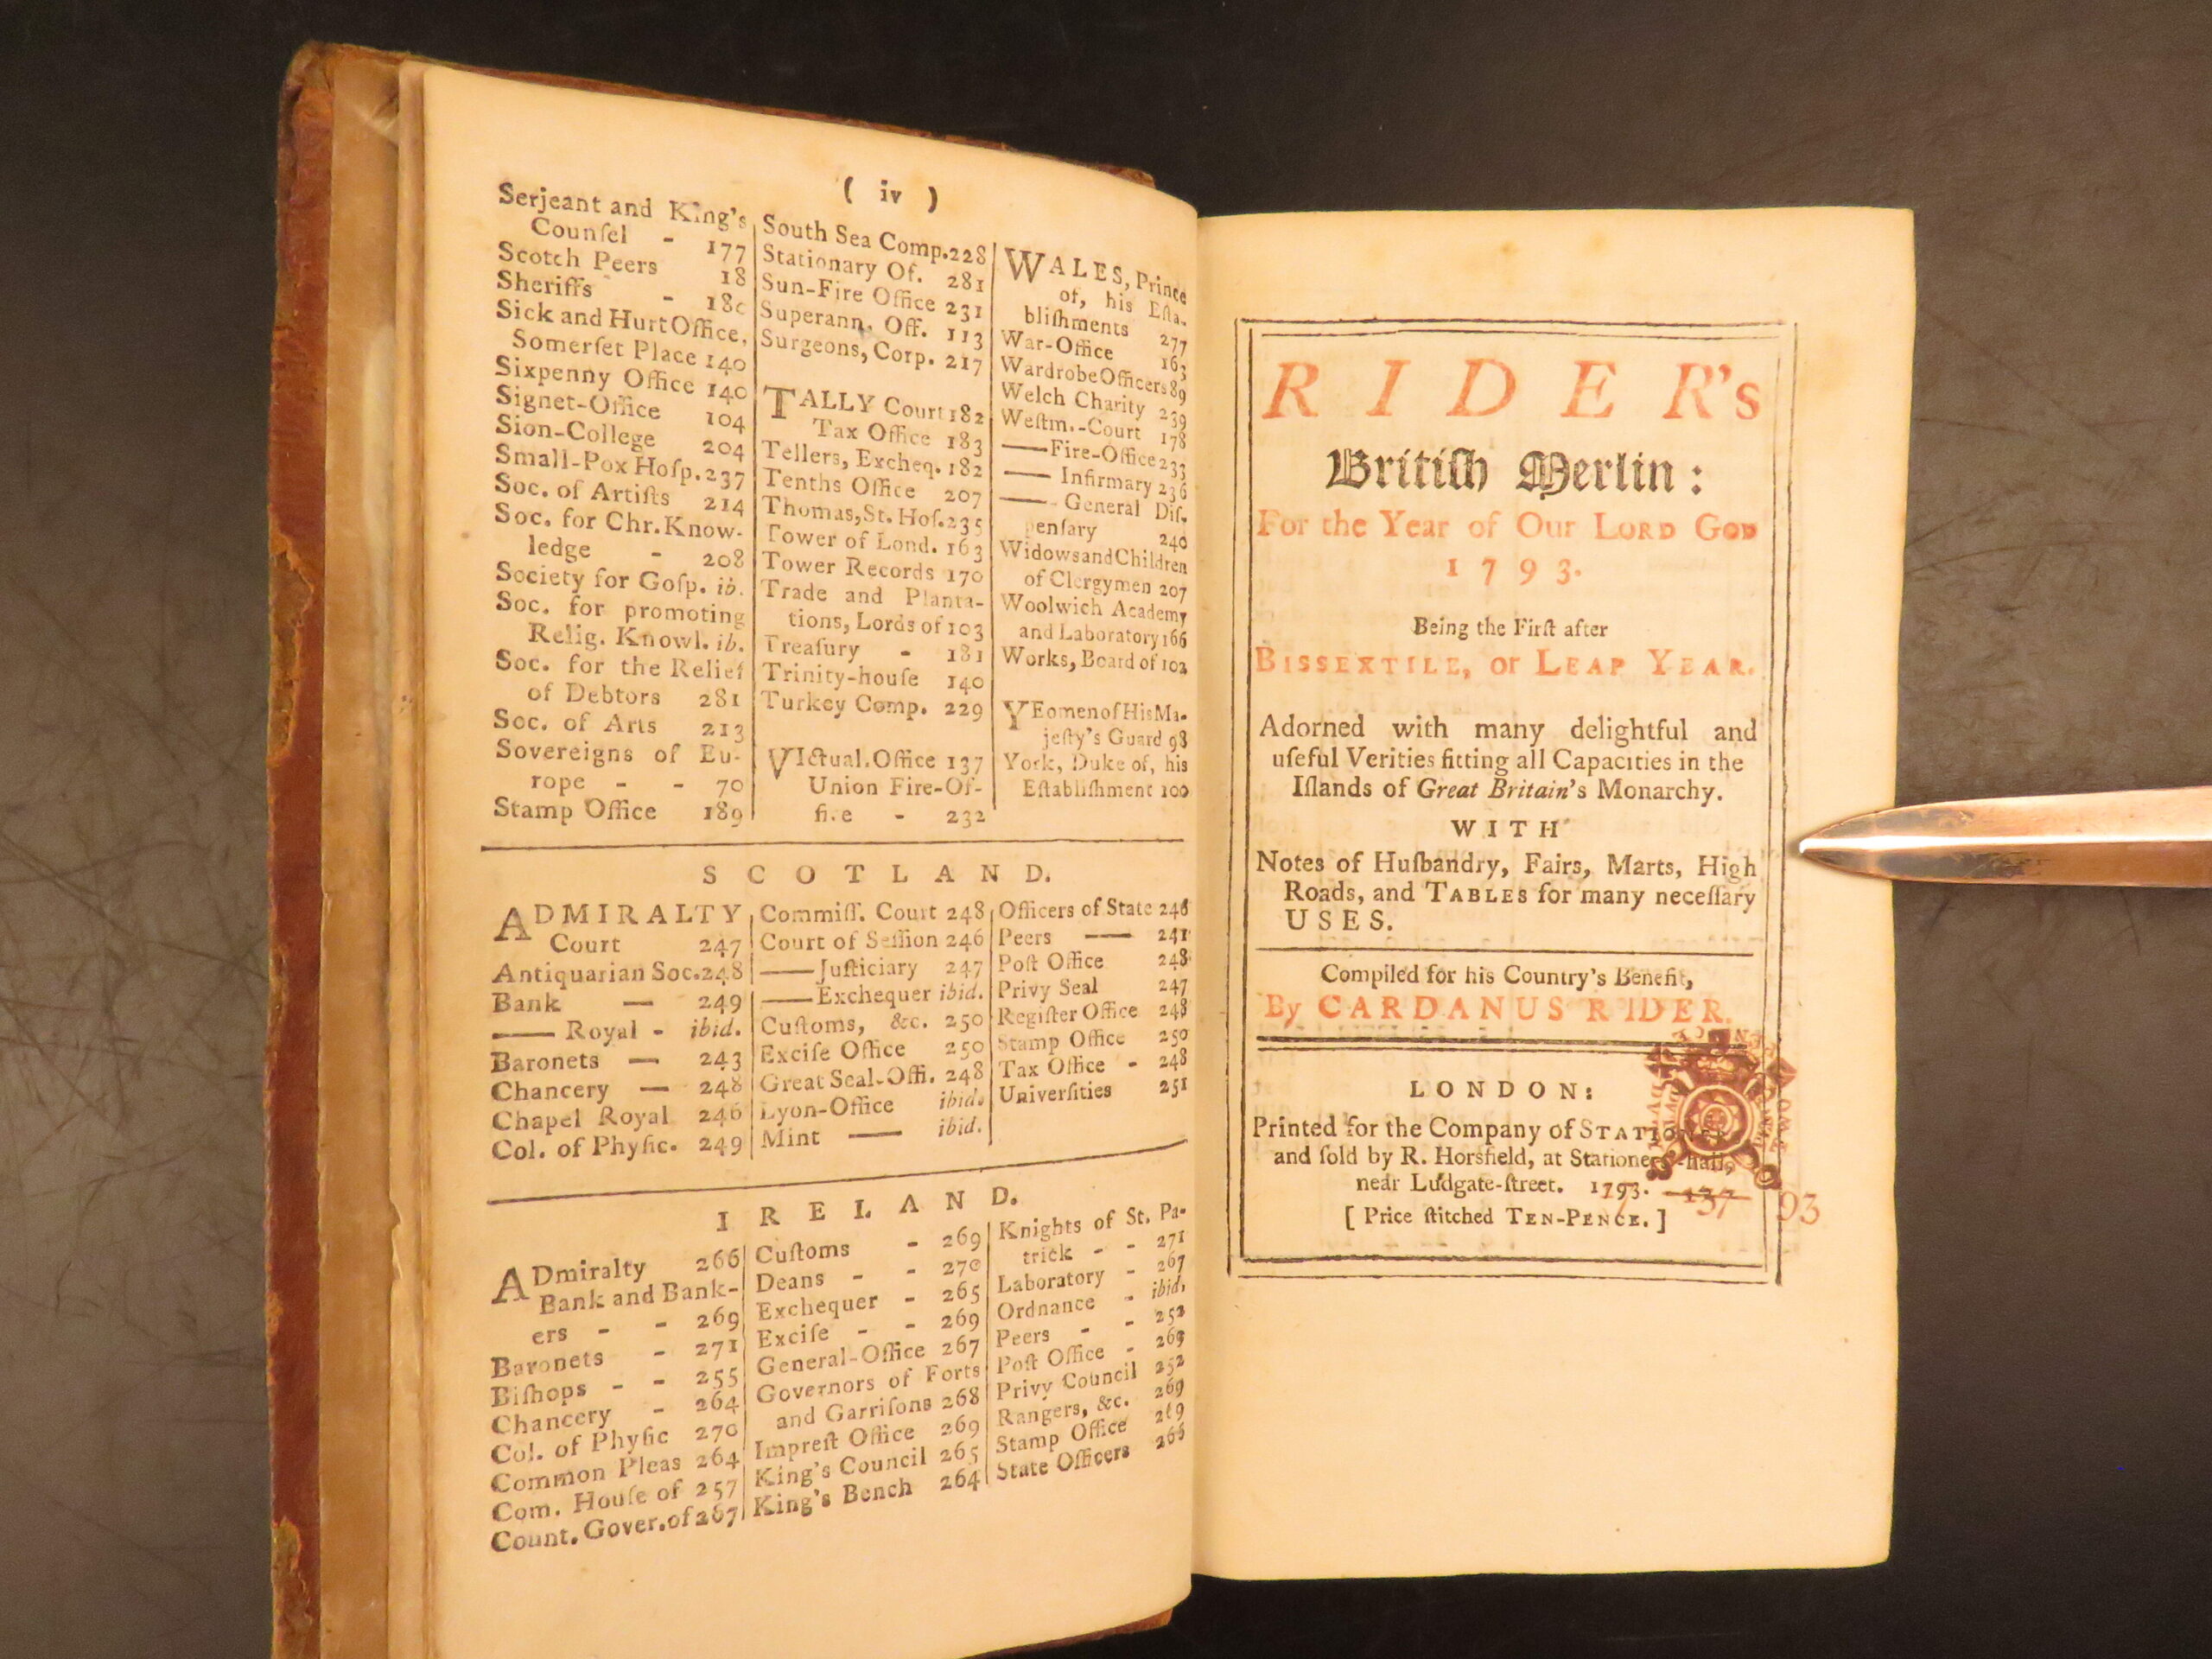 ( iv )
Serjeant and King's
Counſel - 177
Scotch Peers 18
Sheriffs - 180
Sick and Hurt Office,
Somerſet Place 140
Sixpenny Office 140
Signet-Office 104
Sion-College 204
Small-Pox Hoſp. 237
Soc. of Artiſts 214
Soc. for Chr. Know-
ledge - 208
Society for Goſp. ib.
Soc. for promoting
Relig. Knowl. ib.
Soc. for the Relief
of Debtors 281
Soc. of Arts 213
Sovereigns of Eu-
rope - - 70
Stamp Office 189
South Sea Comp. 228
Stationary Of. 281
Sun-Fire Office 231
Superann. Off. 113
Surgeons, Corp. 217
TALLY Court 182
Tax Office 183
Tellers, Excheq. 182
Tenths Office 207
Thomas, St. Hoſ. 235
Tower of Lond. 163
Tower Records 170
Trade and Planta-
tions, Lords of 103
Treaſury - 181
Trinity-houſe 140
Turkey Comp. 229
VIctual. Office 137
Union Fire-Of-
fice - 232
WALES, Prince
of, his Eſta-
bliſhments 277
War-Office 163
Wardrobe Officers 89
Welch Charity 239
Weſtm.-Court 178
—Fire-Office 233
— Infirmary 236
—- General Diſ-
penſary 240
Widows and Children
of Clergymen 207
Woolwich Academy
and Laboratory 166
Works, Board of 102
YEomen of His Ma-
jeſty's Guard 98
York, Duke of, his
Eſtabliſhment 100
SCOTLAND.
ADMIRALTY
Court 247
Antiquarian Soc. 248
Bank — 249
— Royal - ibid.
Baronets — 243
Chancery — 248
Chapel Royal 246
Col. of Phyſic. 249
Commiſſ. Court 248
Court of Seſſion 246
—Juſticiary 247
—Exchequer ibid.
Cuſtoms, &c. 250
Exciſe Office 250
Great Seal-Offi. 248
Lyon-Office ibid.
Mint — ibid.
Officers of State 246
Peers — 241
Poſt Office 248
Privy Seal 247
Regiſter Office 248
Stamp Office 250
Tax Office - 248
Univerſities 251
IRELAND.
ADmiralty 266
Bank and Bank-
ers - - 269
Baronets - 271
Biſhops - - 255
Chancery - 264
Col. of Phyſic 270
Common Pleas 264
Com. Houſe of 257
Count. Gover. of 267
Cuſtoms - 269
Deans - - 270
Exchequer - 265
Exciſe - - 269
General-Office 267
Governors of Forts
and Garriſons 268
Impreſt Office 269
King's Council 265
King's Bench 264
Knights of St. Pa-
trick - - 271
Laboratory - 267
Ordnance - ibid.
Peers - - 252
Poſt Office - 269
Privy Council 252
Rangers, &c. 269
Stamp Office 269
State Officers 266
RIDER's
Britiſh Merlin:
For the Year of Our LORD GOD
1793.
Being the Firſt after
BISSEXTILE, or LEAP YEAR.
Adorned with many delightful and
uſeful Verities fitting all Capacities in the
Iſlands of Great Britain's Monarchy.
WITH
Notes of Huſbandry, Fairs, Marts, High
Roads, and TABLES for many neceſſary
USES.
Compiled for his Country's Benefit,
By CARDANUS RIDER.
LONDON:
Printed for the Company of STATIONERS,
and ſold by R. Horsfield, at Stationers-hall,
near Ludgate-ſtreet. 1793.
[ Price ſtitched TEN-PENCE. ]
93